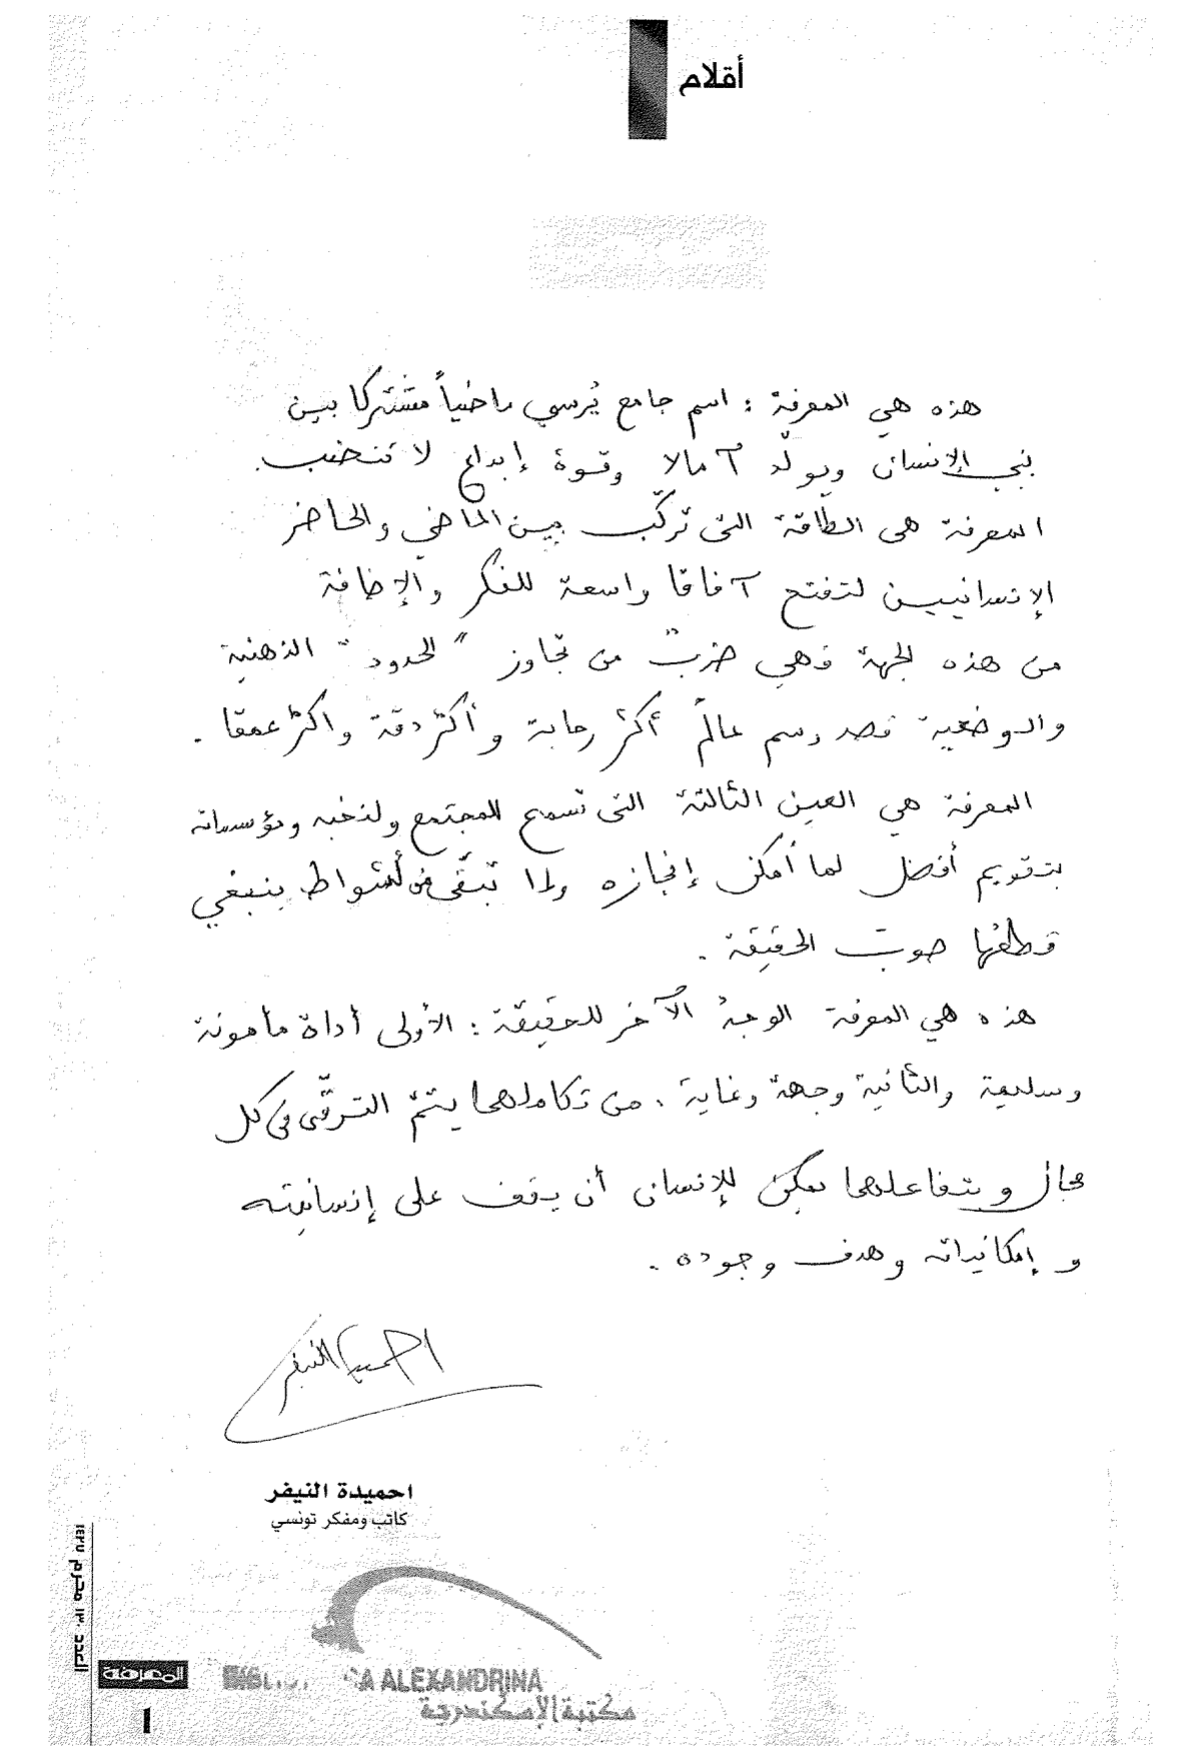 أقلام
هذه هي المعرفة : اسم جامع يُرسي ماضياً مشتركا بين
بني الإنسان ويولّد آمالا وقوة إبداع لا تنضب.
المعرفة هي الطّاقة التي تركّب بين الماضي والحاضر
الإنسانيين لتفتح آفاقا واسعة للفكر والإضافة
من هذه الجهة فهي ضربٌ من تجاوز "الحدود" الذهنية
والوضعية قصد رسم عالمٍ أكثر رحابة وأكثر دقة واكثر عمقا .
المعرفة هي العين الثالثة التي تسمح للمجتمع ولنخبه ومؤسساته
بتقويم أفضل لما أمكن إنجازه ولما تبقّى من أشواط ينبغي
قطعُها صوب الحقيقة .
هذه هي المعرفة الوجهُ الآخر للحقيقة : الأولى أداة مأمونة
وسليمة والثانية وجهة وغاية . من تكاملهما يتمّ الترقّي في كل
مجال وبتفاعلهما يمكن للإنسان أن يقف على إنسانيته
وإمكانياته وهدف وجوده .
احميدة النيفر
احميدة النيفر
كاتب ومفكر تونسي
العدد ١٣٠ محرم ١٤٢٧
المعرفة
١
CA ALEXANDRINA
مكتبة الإسكندرية